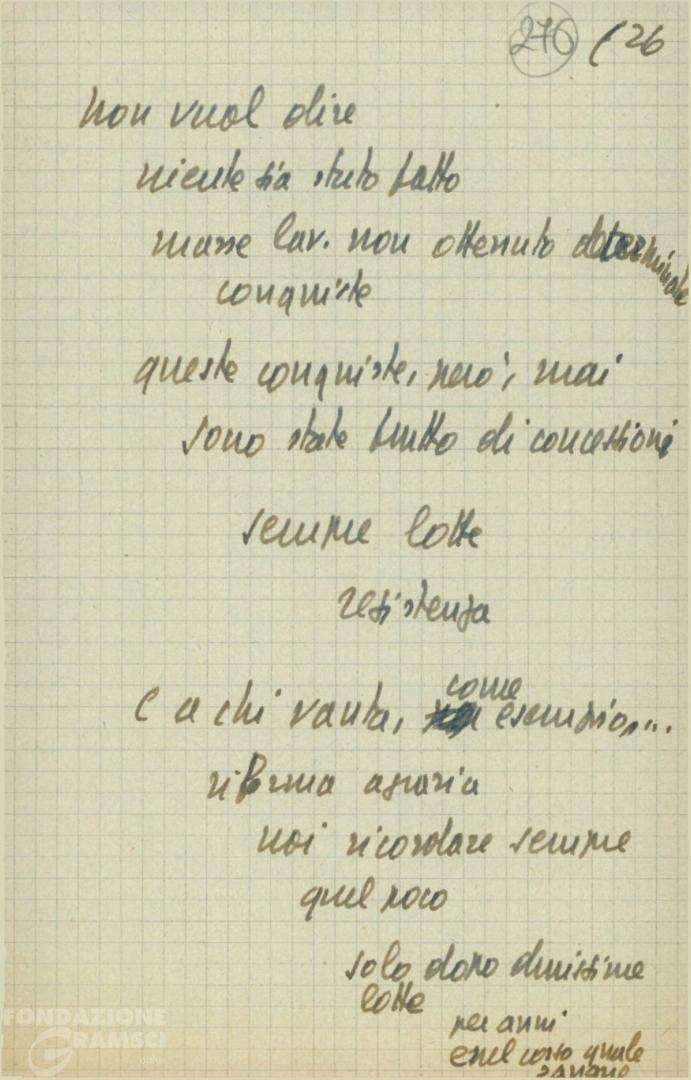 276 (26
non vuol dire
niente sia stato fatto
masse lav. non ottenuto determinate
conquiste
queste conquiste, però, mai
sono state frutto di concessioni
sempre lotte
resistenza
E a chi vanta, come esempio,...
riforma agraria
noi ricordare sempre
quel poco
solo dopo durissime
lotte
per anni
e nel corso quale
sangue
FONDAZIONE
GRAMSCI